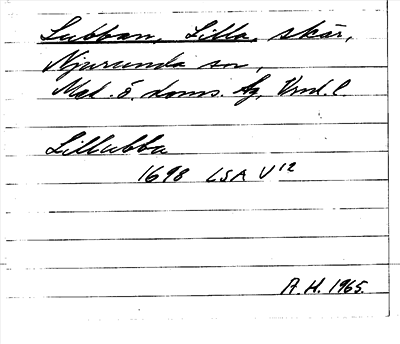 Lubban, Lilla, skär,
Njurunda sn,
Med. ö. doms. tg, Vnd. l.
Lillubba
1698 LSA V 12
A.H. 1965.